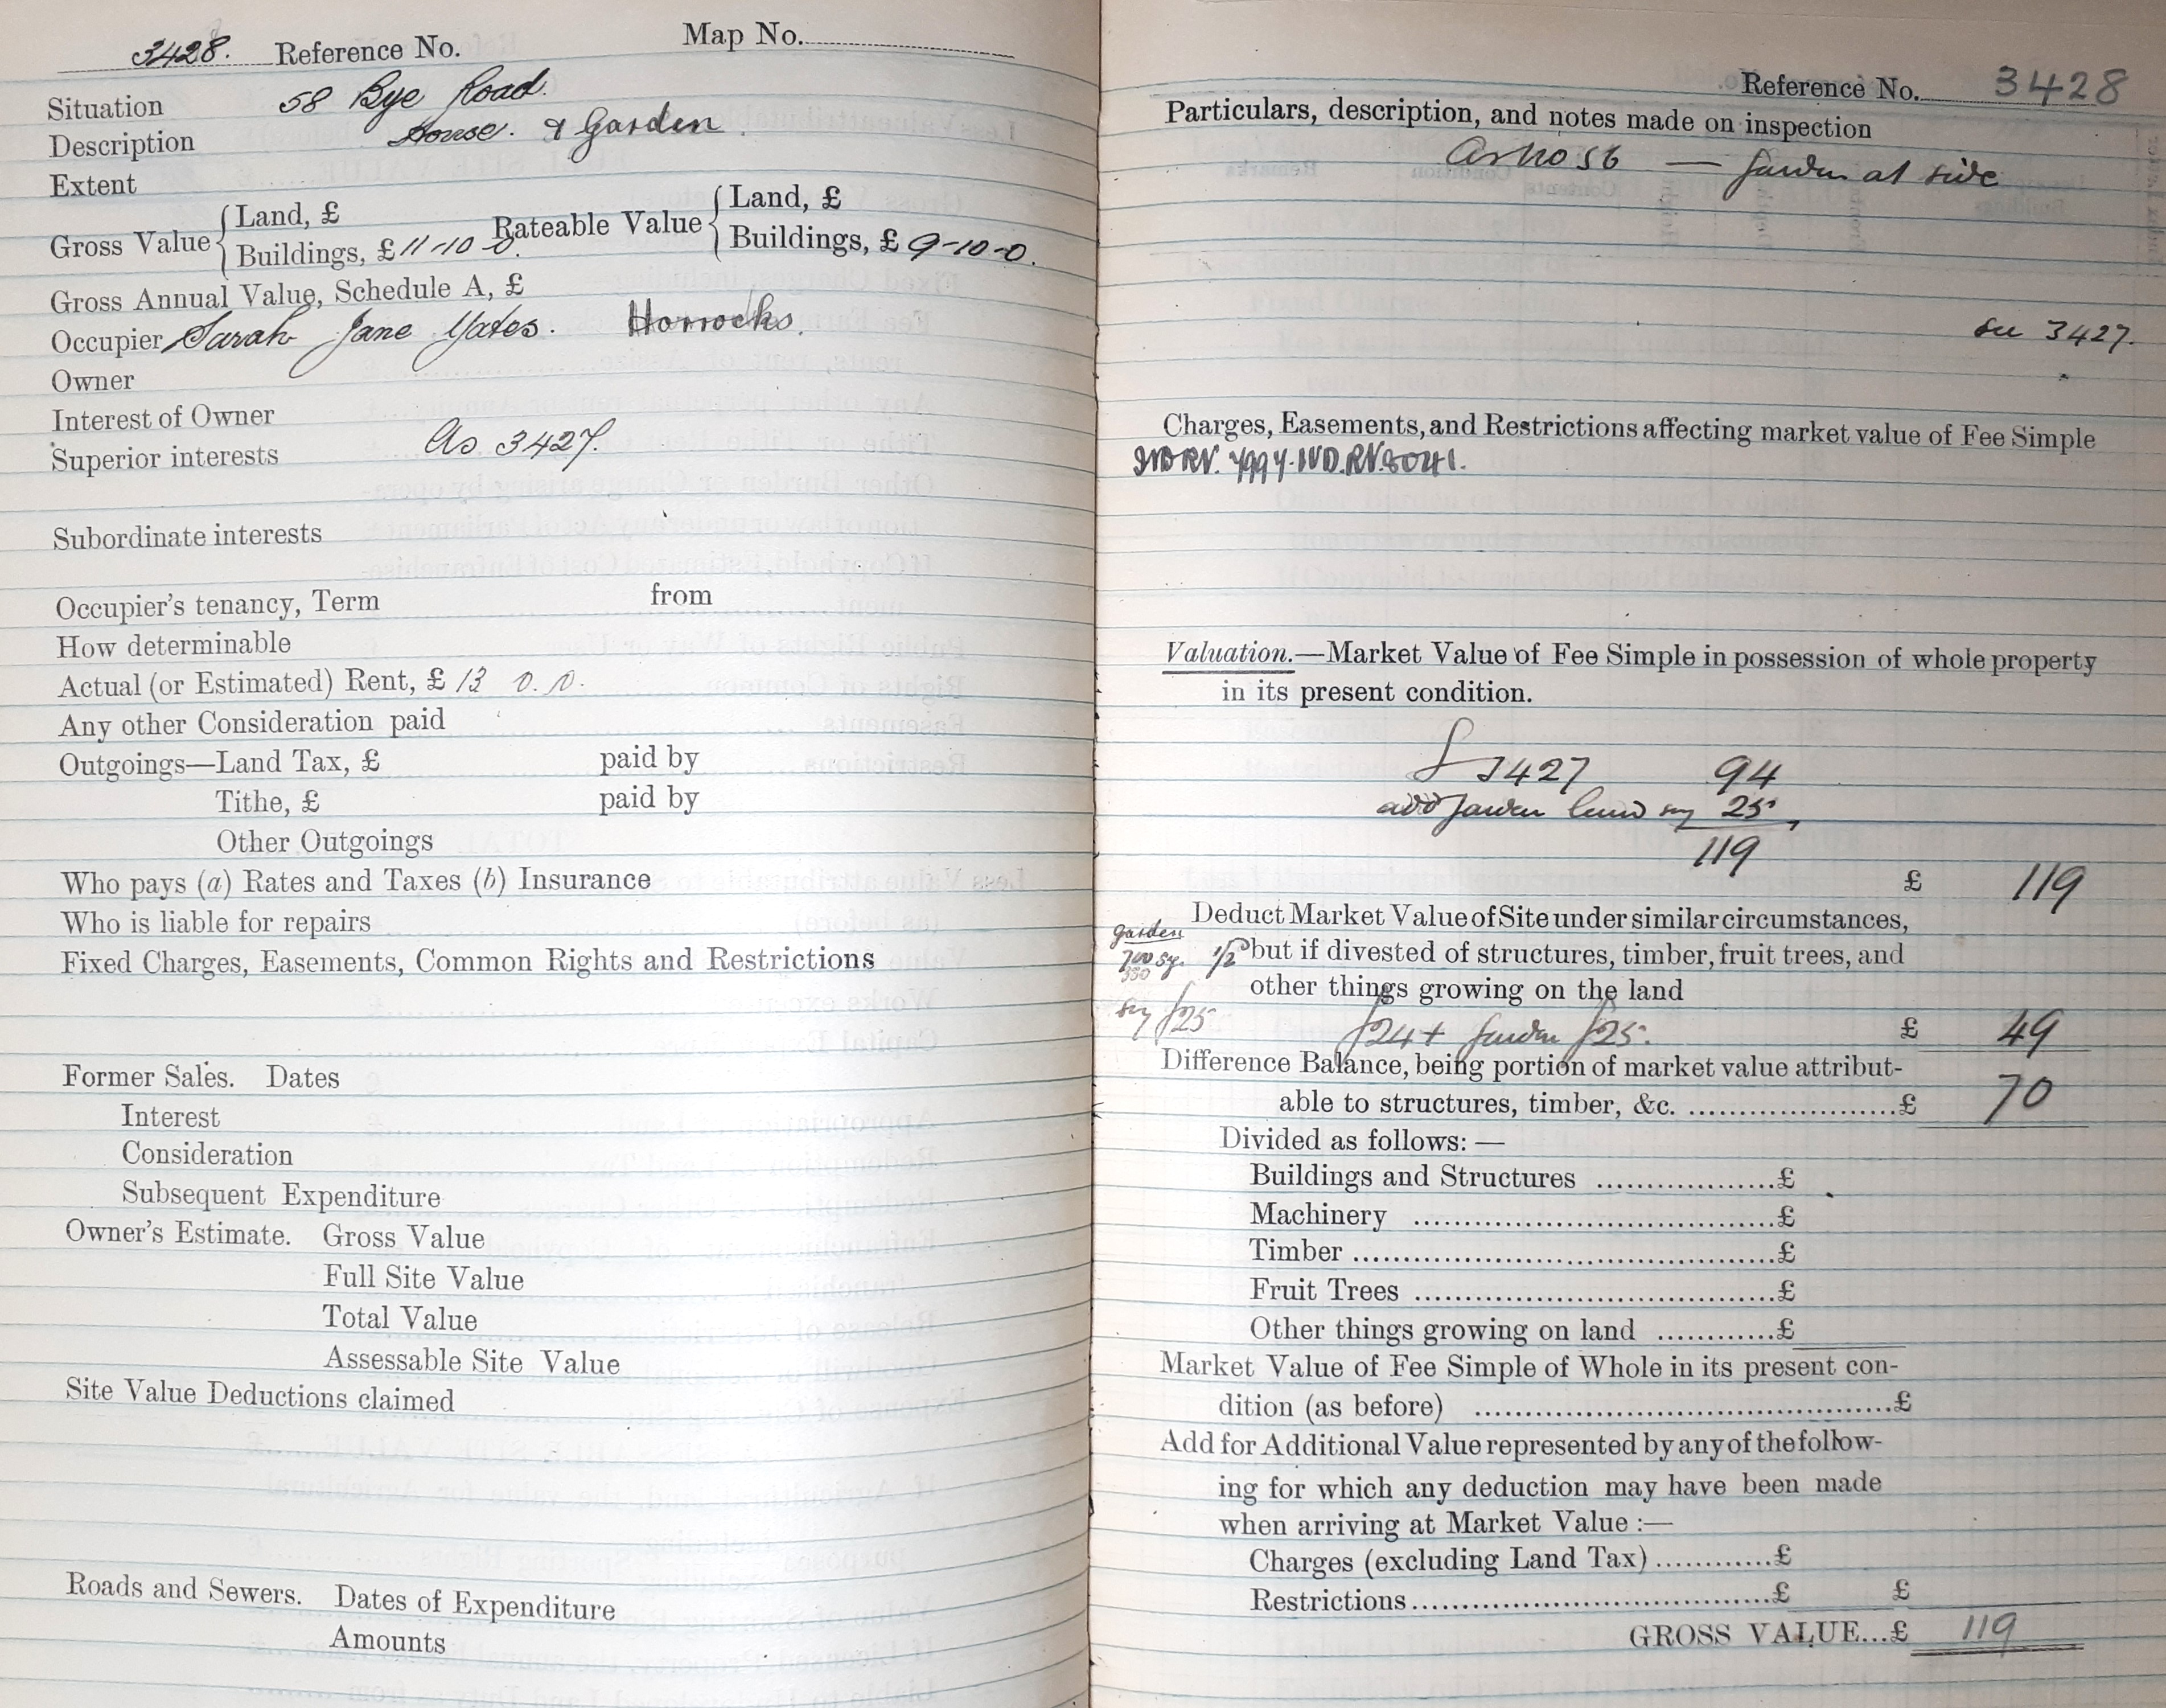 3428. Reference No. Map No.
Situation 58 Bye Road.
Description House. & Garden.
Extent
Gross Value { Land, £ Rateable Value { Land, £
Buildings, £ 11-10-0. Buildings, £ 9-10-0.
Gross Annual Value, Schedule A, £
Occupier Sarah Jane Yates. Horrocks.
Owner
Interest of Owner
Superior interests As 3427.
Subordinate interests
Occupier's tenancy, Term from
How determinable
Actual (or Estimated) Rent, £ 13 0. 0.
Any other Consideration paid
Outgoings—Land Tax, £ paid by
Tithe, £ paid by
Other Outgoings
Who pays (a) Rates and Taxes (b) Insurance
Who is liable for repairs
Fixed Charges, Easements, Common Rights and Restrictions
Former Sales. Dates
Interest
Consideration
Subsequent Expenditure
Owner's Estimate. Gross Value
Full Site Value
Total Value
Assessable Site Value
Site Value Deductions claimed
Roads and Sewers. Dates of Expenditure
Amounts
Reference No. 3428
Particulars, description, and notes made on inspection
As No 56 — garden at side
see 3427.
Charges, Easements, and Restrictions affecting market value of Fee Simple
Valuation.—Market Value of Fee Simple in possession of whole property
in its present condition.
3427 94
add garden land say 25
119
£ 119
Deduct Market Value of Site under similar circumstances,
garden
700 sy. 1/2 but if divested of structures, timber, fruit trees, and
350
other things growing on the land
say £25 £24 + garden £25. £ 49
Difference Balance, being portion of market value attribut-
able to structures, timber, &c. ......................£ 70
Divided as follows: —
Buildings and Structures ..................£
Machinery .....................................£
Timber ...........................................£
Fruit Trees .....................................£
Other things growing on land ............£
Market Value of Fee Simple of Whole in its present con-
dition (as before) ..........................................£
Add for Additional Value represented by any of the follow-
ing for which any deduction may have been made
when arriving at Market Value :—
Charges (excluding Land Tax) ............£
Restrictions.....................................£ £
GROSS VALUE...£ 119